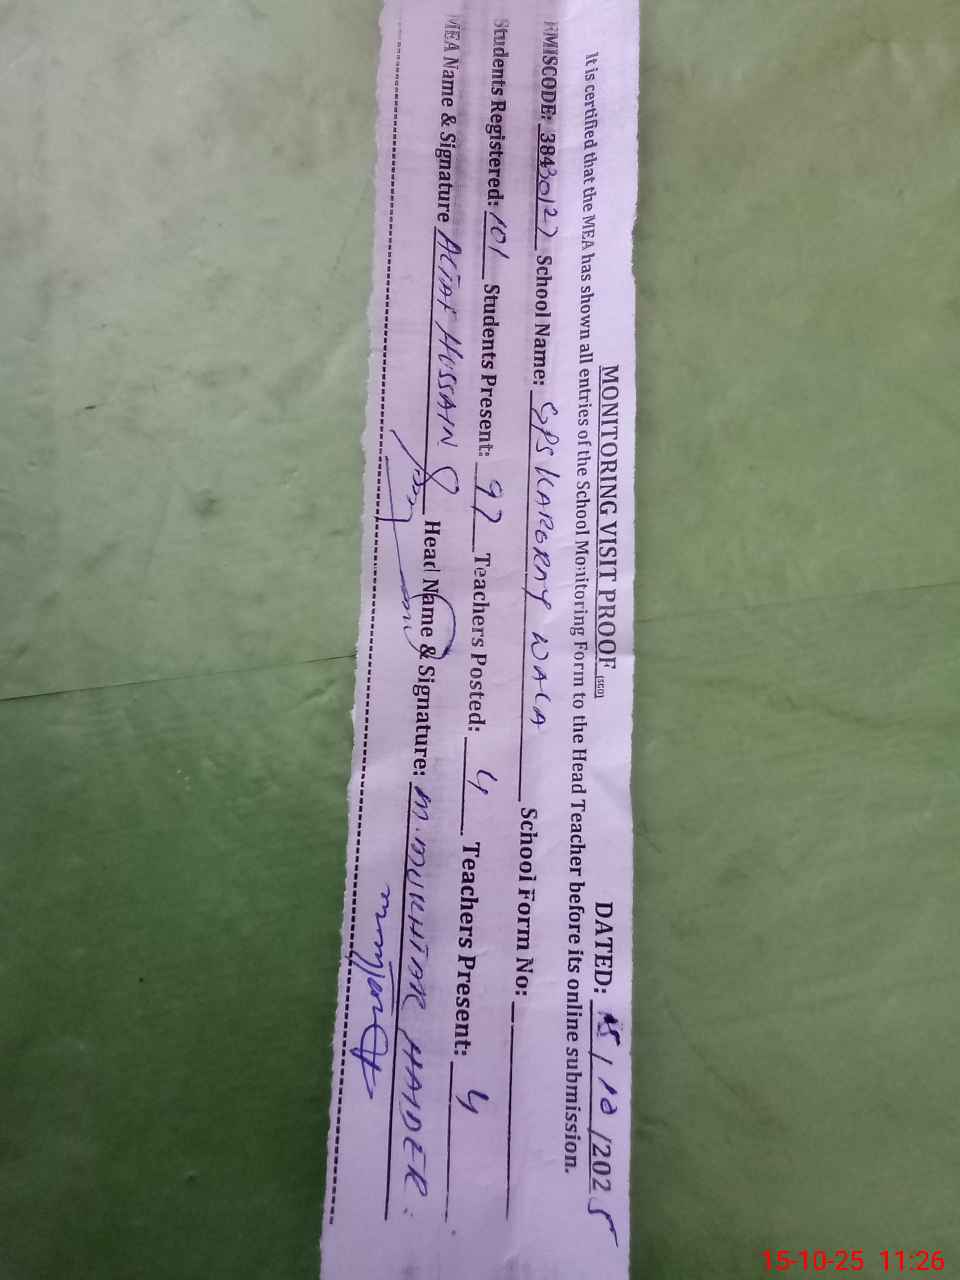 MONITORING VISIT PROOF (SGD) DATED: 15 / 10 /2025
It is certified that the MEA has shown all entries of the School Monitoring Form to the Head Teacher before its online submission.
EMISCODE: 38430127 School Name: GPS KARORAY WALA School Form No:
Students Registered: 101 Students Present: 97 Teachers Posted: 4 Teachers Present: 4
MEA Name & Signature ALTAF HUSSAIN Head Name & Signature: M. MUKHTAR HAIDER
15-10-25 11:26